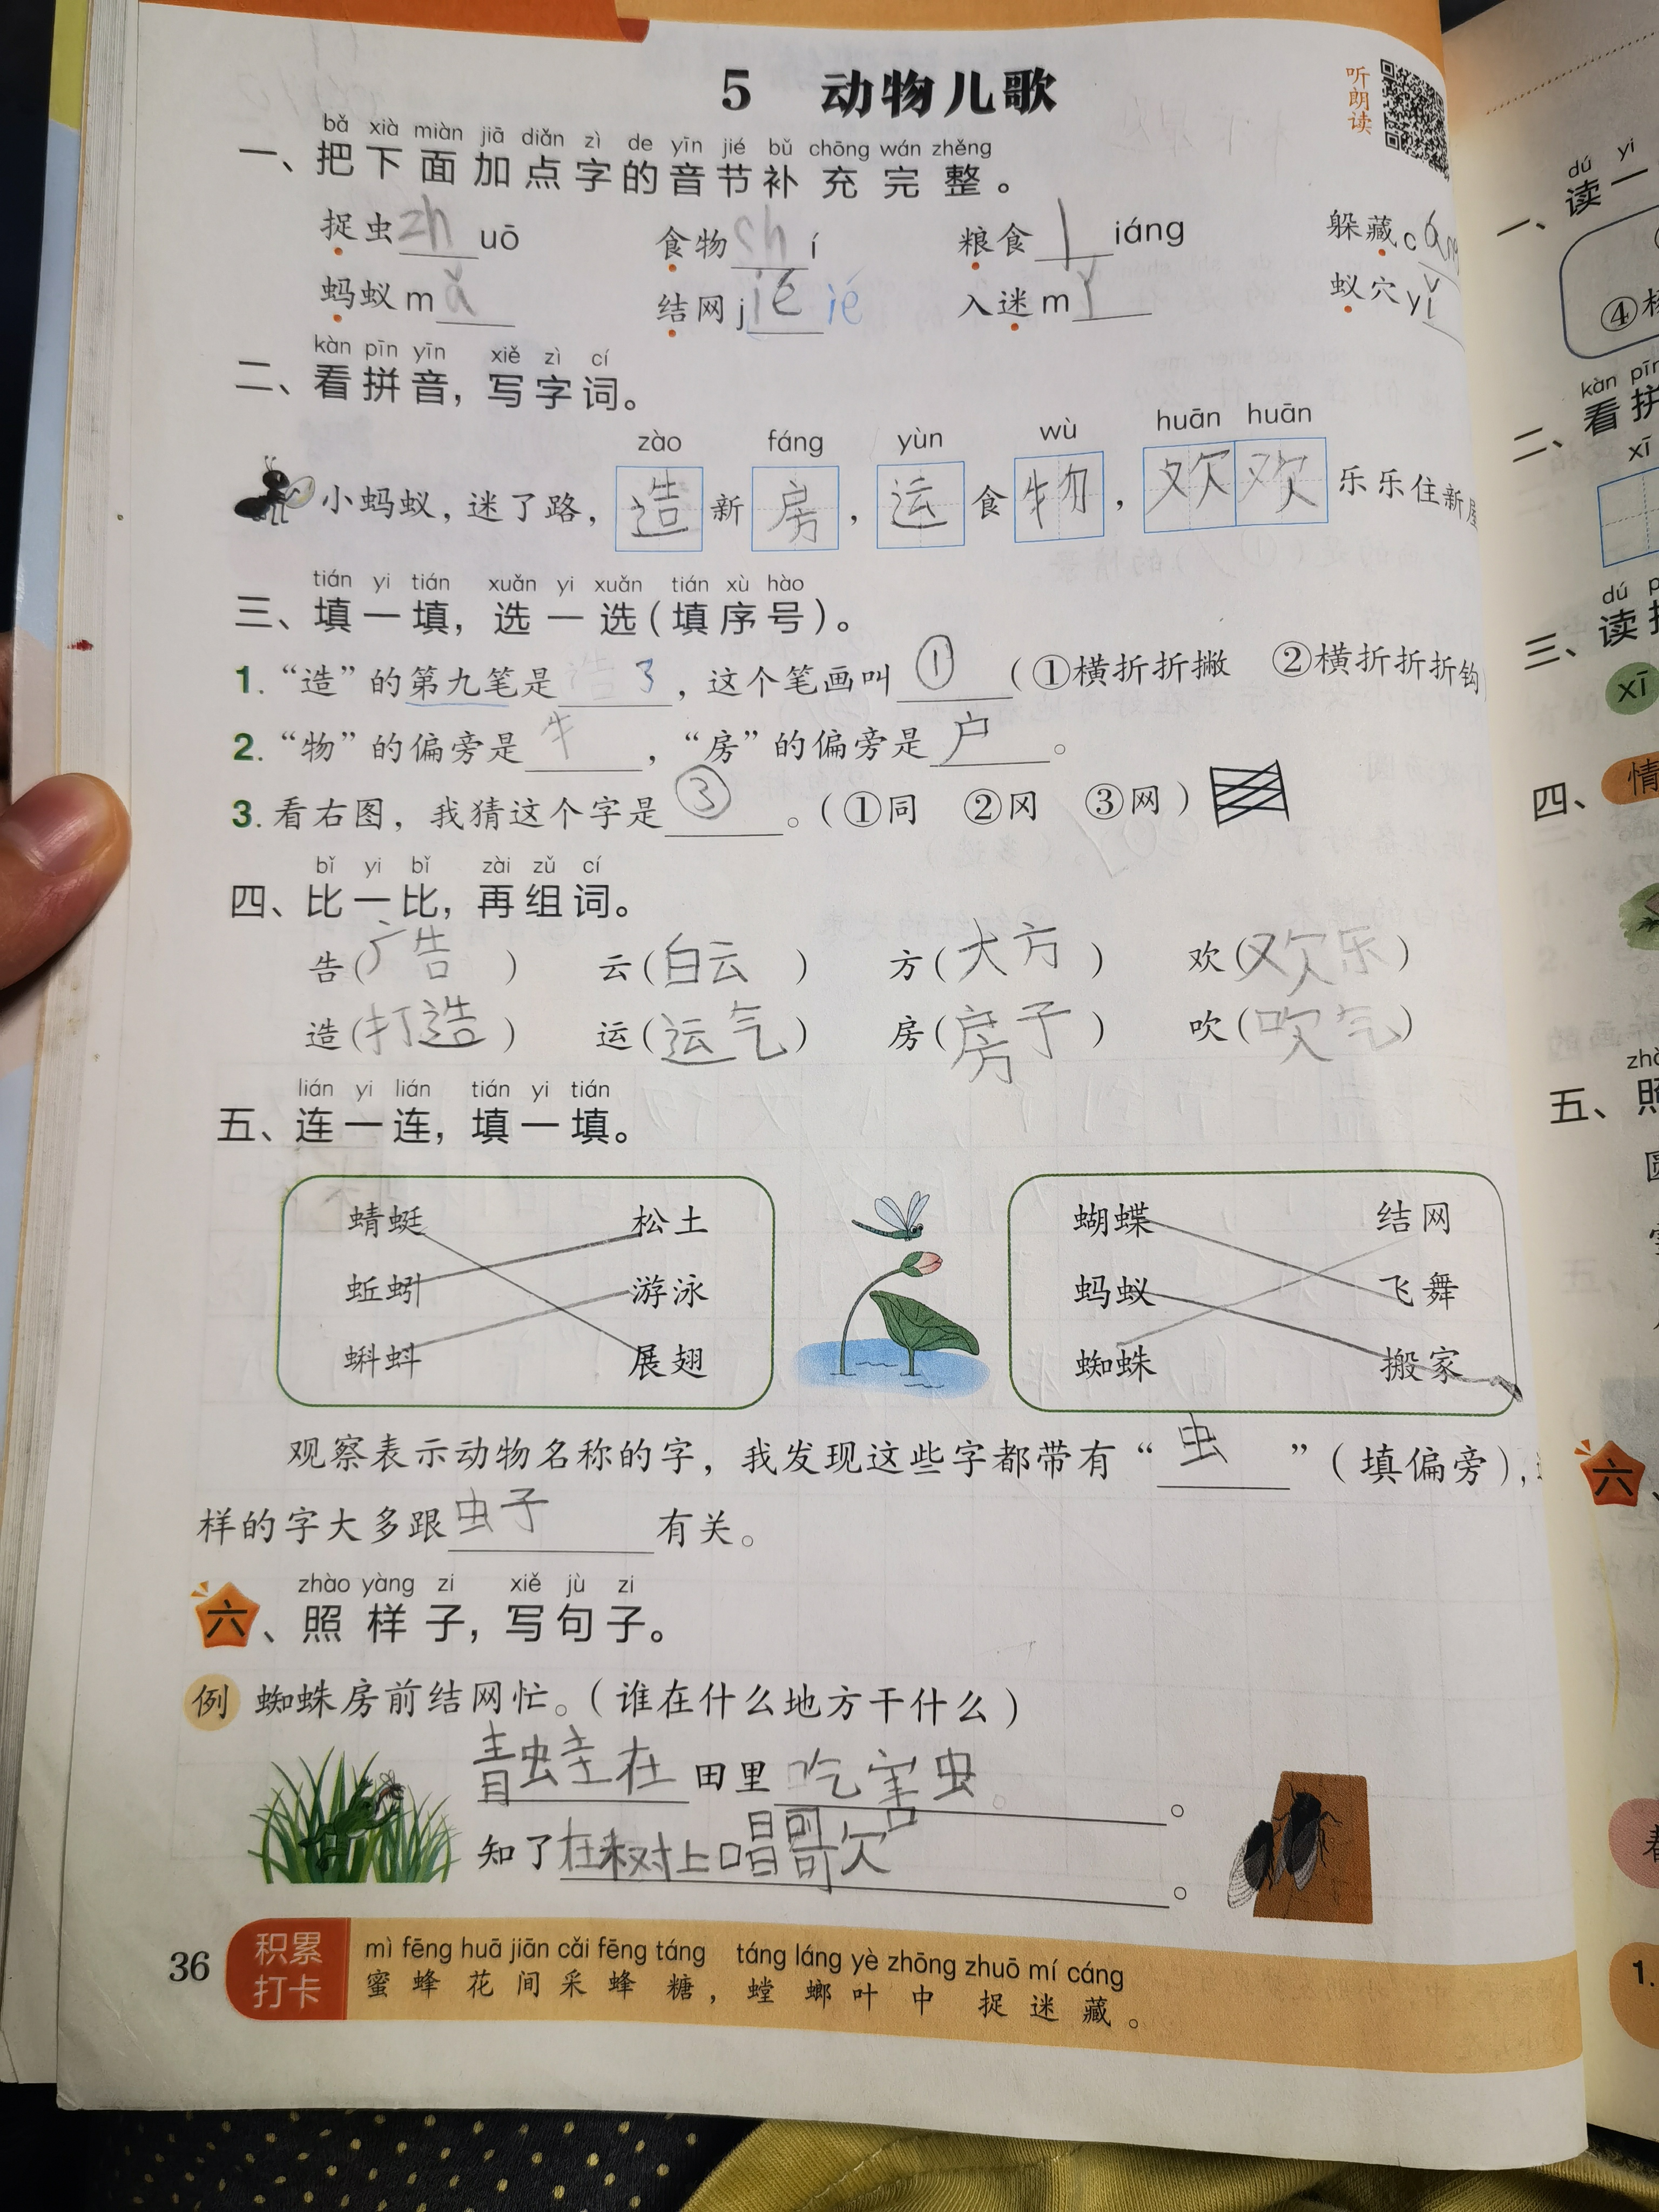 5 动物儿歌
听朗读
bǎ xià miàn jiā diǎn zì de yīn jié bǔ chōng wán zhěng
一、把下面加点字的音节补充完整。
捉虫 zh uō 食物 ch í 粮食 l iáng 躲藏 c áng
蚂蚁 m ǎ 结网 j ié ié 入迷 m í 蚁穴 y ǐ
kàn pīn yīn xiě zì cí
二、看拼音，写字词。
zào fáng yùn wù huān huān
小蚂蚁，迷了路，造新房，运食物，欢欢乐乐住新屋
tián yi tián xuǎn yi xuǎn tián xù hào
三、填一填，选一选（填序号）。
1. “造”的第九笔是 造 3 ，这个笔画叫 ① （①横折折撇 ②横折折折钩
2. “物”的偏旁是 牜 ，“房”的偏旁是 户 。
3. 看右图，我猜这个字是 ③ 。（①同 ②冈 ③网）
bǐ yi bǐ zài zǔ cí
四、比一比，再组词。
告（广告） 云（白云） 方（大方） 欢（欢乐）
造（打造） 运（运气） 房（房子） 吹（吹气）
lián yi lián tián yi tián
五、连一连，填一填。
蜻蜓 松土 蝴蝶 结网
蚯蚓 游泳 蚂蚁 飞舞
蝌蚪 展翅 蜘蛛 搬家
观察表示动物名称的字，我发现这些字都带有“ 虫 ”（填偏旁），
样的字大多跟 虫子 有关。
zhào yàng zi xiě jù zi
六、照样子，写句子。
例 蜘蛛房前结网忙。（谁在什么地方干什么）
青蛙在 田里 吃害虫 。
知了 在树上唱歌 。
36 积累打卡
mì fēng huā jiān cǎi fēng táng táng láng yè zhōng zhuō mí cáng
蜜蜂花间采蜂糖，螳螂叶中捉迷藏。
dú yi
一、读一
④
kàn pīn
二、看拼
xī
dú
三、读
xī
四、情
五、照
六、
1.